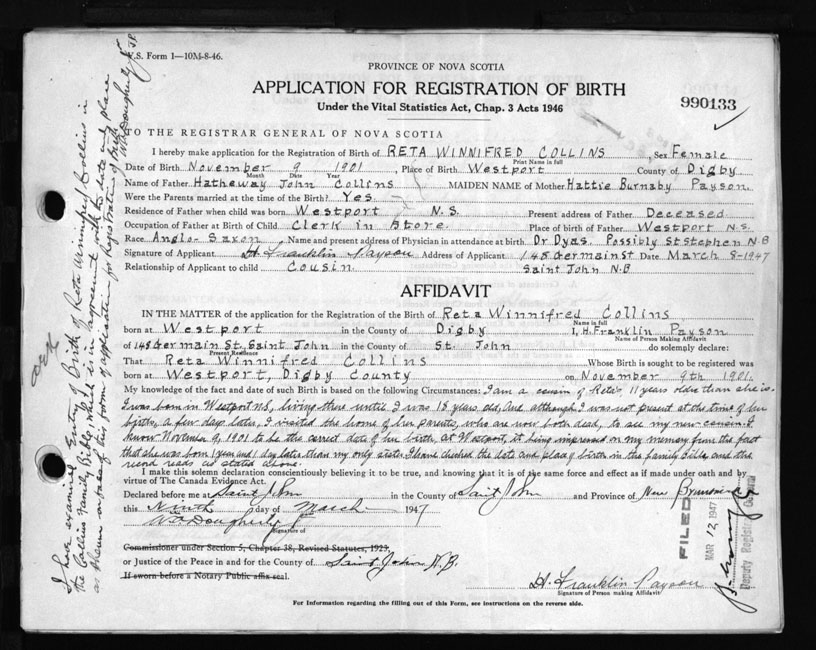 V.S. Form 1—10M-8-46.
PROVINCE OF NOVA SCOTIA
APPLICATION FOR REGISTRATION OF BIRTH
Under the Vital Statistics Act, Chap. 3 Acts 1946
990133
TO THE REGISTRAR GENERAL OF NOVA SCOTIA
I hereby make application for the Registration of Birth of RETA WINNIFRED COLLINS, Sex Female
Print Name in full
Date of Birth November 9 1901, Place of Birth Westport County of Digby
Month Date Year
Name of Father Hatheway John Collins MAIDEN NAME of Mother Hattie Burnaby Payson
Were the Parents married at the time of the Birth? Yes
Residence of Father when child was born Westport N.S. Present address of Father Deceased
Occupation of Father at Birth of Child Clerk in Store. Place of birth of Father Westport N.S.
Race Anglo-Saxon Name and present address of Physician in attendance at birth Dr Dyas. Possibly St Stephen N.B
Signature of Applicant H. Franklin Payson Address of Applicant 148 Germain St Date March 8-1947
Relationship of Applicant to child Cousin. Saint John N.B.
AFFIDAVIT
IN THE MATTER of the application for the Registration of the Birth of Reta Winnifred Collins
Name in full
born at Westport in the County of Digby I, H. Franklin Payson
Name of Person Making Affidavit
of 148 Germain St, Saint John in the County of St. John do solemnly declare:
Present Residence
That Reta Winnifred Collins Whose Birth is sought to be registered was
born at Westport, Digby County on November 9th 1901.
My knowledge of the fact and date of such Birth is based on the following Circumstances: I am a cousin of Reta's 11 years older than she is.
I was born in Westport N.S., living there until I was 18 years old, and although I was not present at the time of her
birth, a few days later, I visited the home of her parents, who are now both dead, to see my new cousin. I
know November 9, 1901 to be the correct date of her birth, at Westport, it being impressed on my memory from the fact
that she was born 1 year and 1 day later than my only sister. I have checked the date and place of birth in the family bible, and the
record reads as stated above.
I make this solemn declaration conscientiously believing it to be true, and knowing that it is of the same force and effect as if made under oath and by
virtue of The Canada Evidence Act.
Declared before me at Saint John in the County of Saint John and Province of New Brunswick
this Ninth day of March 1947
Wm Dougherty
Signature of
Commissioner under Section 5, Chapter 38, Revised Statutes, 1923,
or Justice of the Peace in and for the County of Saint John N.B.
If sworn before a Notary Public affix seal.
H. Franklin Payson
Signature of Person making Affidavit
For Information regarding the filling out of this Form, see instructions on the reverse side.
FILED
MAR 12 1947
Deputy Registrar General
I have examined Entry of Birth of Reta Winnifred Collins in
the Collins Family Bible, which is in agreement with the date and place
as shown on face of this form of application for Registration of Birth
Wm Dougherty J.P.